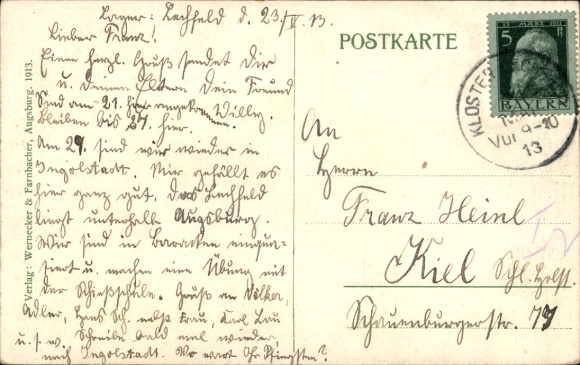 Lager-Lechfeld d. 23/V. 13.
Lieber Franz!
Einen herzl. Gruß sendet Dir
u. deinen Eltern Dein Freund
Sind am 21. hier angekommen. Willy.
bleiben bis 27. hier.
Am 29. sind wir wieder in
Ingolstadt. Mir gefällt es
hier ganz gut, das Lechfeld
liegt unterhalb Augsburg.
Wir sind in Baracken einqua-
tiert u. machen eine Übung mit
der Schießschule. Gruß an Völker,
Adler, Hans Sch. nebst Frau, Karl Lau
u. s. w. Schreibe bald mal wieder,
nach Ingolstadt. Wo wart Ihr Pfingsten?
POSTKARTE
5 Pf
BAYERN
KLOSTER
Vor 9-10
13
An
Herrn
Franz Heinl
Kiel Schl. Holst.
Schauenburgerstr. 77
Verlag: Wernecker & Farnbacher, Augsburg. 1913.